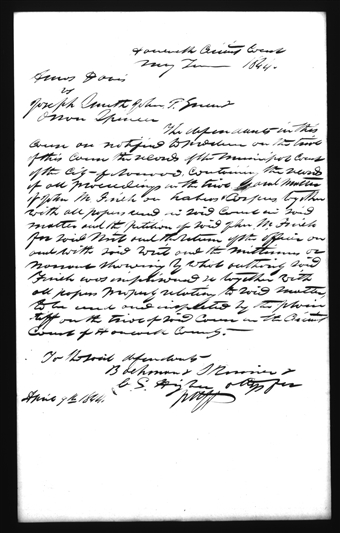 Hancock Circuit Court
May Term 1844.
Amos Davis
vs
Joseph Smith John P. Greene
Orson Spencer
The defendants in this
cause are notified to produce on the trial
of this Cause the records of the Municipal Court
of the City of Nauvoo, Containing the record
of all proceedings in the trial and matter
of John M. Finch on habeas Corpus together
with all papers used in said Court in said
matter and the petition of said John M. Finch
for said Writ and the return of the officer on
and with said Writ and the Mittimus or
warrant showing by what authority said
Finch was imprisoned together with
all papers properly relating to said matter,
to be used and inspected by the plain
tiff on the trial of said Cause in the Circuit
Court of Hancock County.
To the said defendants
Bachman &
C. S. Higbee attys for
pltff
April 9th 1844.